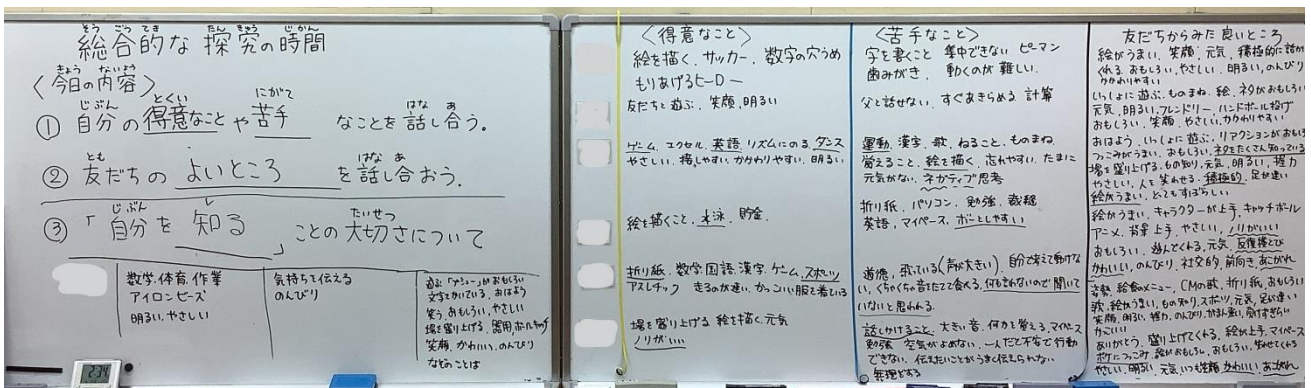 総合的な探究の時間
そうごうてき たんきゅう じかん
〈今日の内容〉
きょう ないよう
① 自分の得意なことや苦手 なことを話し合う。
じぶん とくい にがて はな あ
② 友だちの よいところ を話し合おう。
とも はな あ
③「自分を 知る 」ことの大切さについて
じぶん し たいせつ
数学、体育、作業
アイロンビーズ
明るい、やさしい
気持ちを伝える
のんびり
笑う、おもしろい、やさしい
場を盛り上げる、器用、ボールキャッチ
笑顔、かわいい、のんびり
2:34
〈得意なこと〉
絵を描く、サッカー、数字の穴うめ
もりあげるヒーロー
友だちと遊ぶ、笑顔、明るい
ゲーム、エクセル、英語、リズムにのる、ダンス
やさしい、接しやすい、かかわりやすい、明るい
絵を描くこと、水泳、貯金
折り紙、数学、国語、漢字、ゲーム、スポーツ
アスレチック 走るのが速い、かっこいい服を着ている
場を盛り上げる 絵を描く、元気
ノリがいい
〈苦手なこと〉
字を書くこと 集中できない ピーマン
歯みがき、動くのが難しい、
父と話せない、すぐあきらめる 計算
運動、漢字、歌、ねること、ものまね
覚えること、絵を描く、忘れやすい、たまに
元気がない、ネガティブ思考
折り紙、パソコン、勉強、裁縫
英語、マイペース、ボーとしやすい
道徳、歌っている(声が大きい)、自分で考えて動けな
い、くちゃくちゃ音たてて食べる、何も言わないので聞いて
いないと思われる
話しかけること、大きい音、何かを覚える、マイペース
勉強 空気がよめない、一人だと不安で行動
できない、伝えたいことがうまく伝えられない
無理とする
友だちからみた良いところ
絵がうまい、笑顔、元気、積極的に話か
くれる、おもしろい、やさしい、明るい、のんびり
かかわりやすい
いっしょに遊ぶ、ものまね、絵、ネタがおもしろい
元気、明るい、フレンドリー、ハンドボール投げ
おもしろい、笑顔、やさしい、かかわりやすい
おはよう、いっしょに遊ぶ、リアクションがおもしろ
つっこみがうまい、おもしろい、ネタをたくさん知っている
場を盛り上げる、もの知り、元気、明るい、握力
やさしい、人を笑わせる、積極的、足が速い
絵がうまい、とてもすばらしい
絵がうまい、キャラクターが上手、キャッチボール
アニメ、背景上手、やさしい、ノリがいい
おもしろい、遊んでくれる、元気、反復横とび
かわいい、のんびり、社交的、前向き、あこがれ
給食のメニュー、CMの歌、折り紙、おもしろい
歌、絵がうまい、もの知り、スポーツ、元気、足が速い
笑顔、明るい、握力、のんびり、がまん強い
かっこいい
ありがとう、盛り上げてくれる、絵が上手、マイペース
ボケにつっこみ、絵がおもしろい、おもしろい、笑わせてくれる
やさしい、明るい、元気、いつも笑顔、かわいい、あこがれ